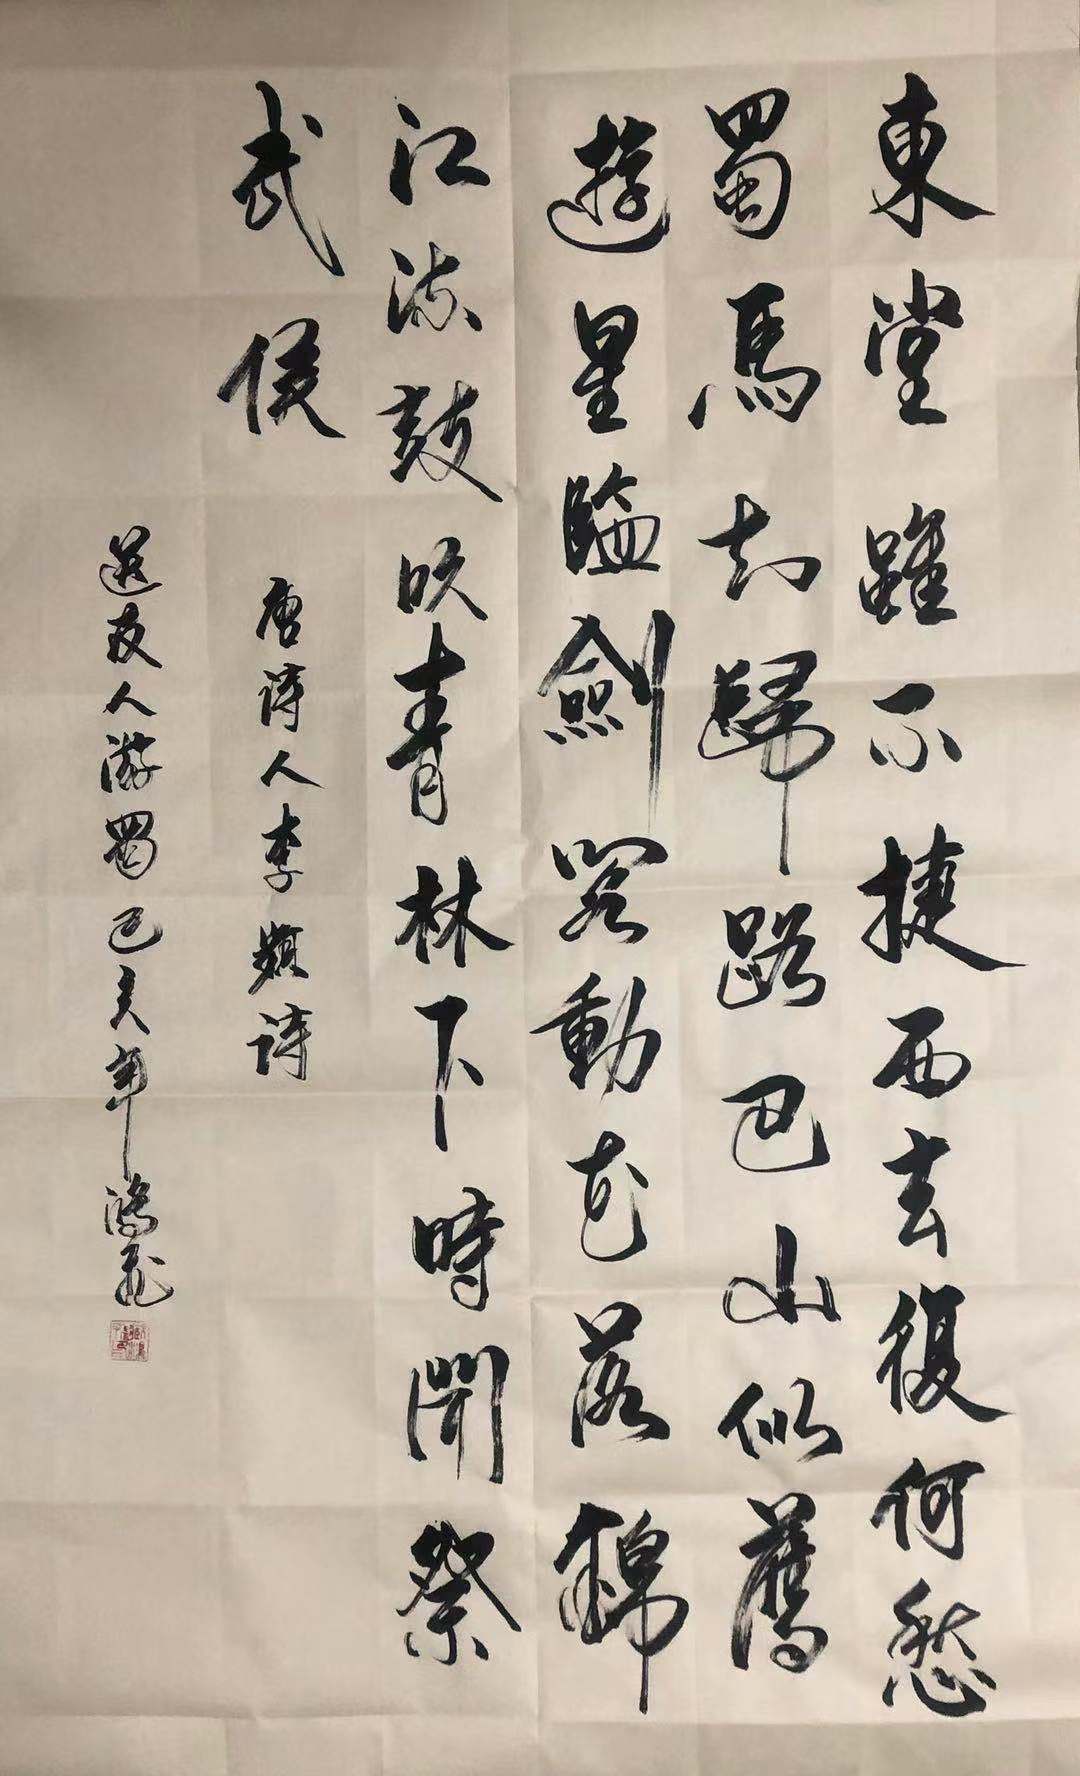 東堂雖不捷西去復何愁
蜀馬知歸路巴山似舊
遊星臨劍閣動花落錦
江流鼓吹青林下時聞祭
武侯
唐詩人李頻詩
送友人游蜀己亥年鴻飛